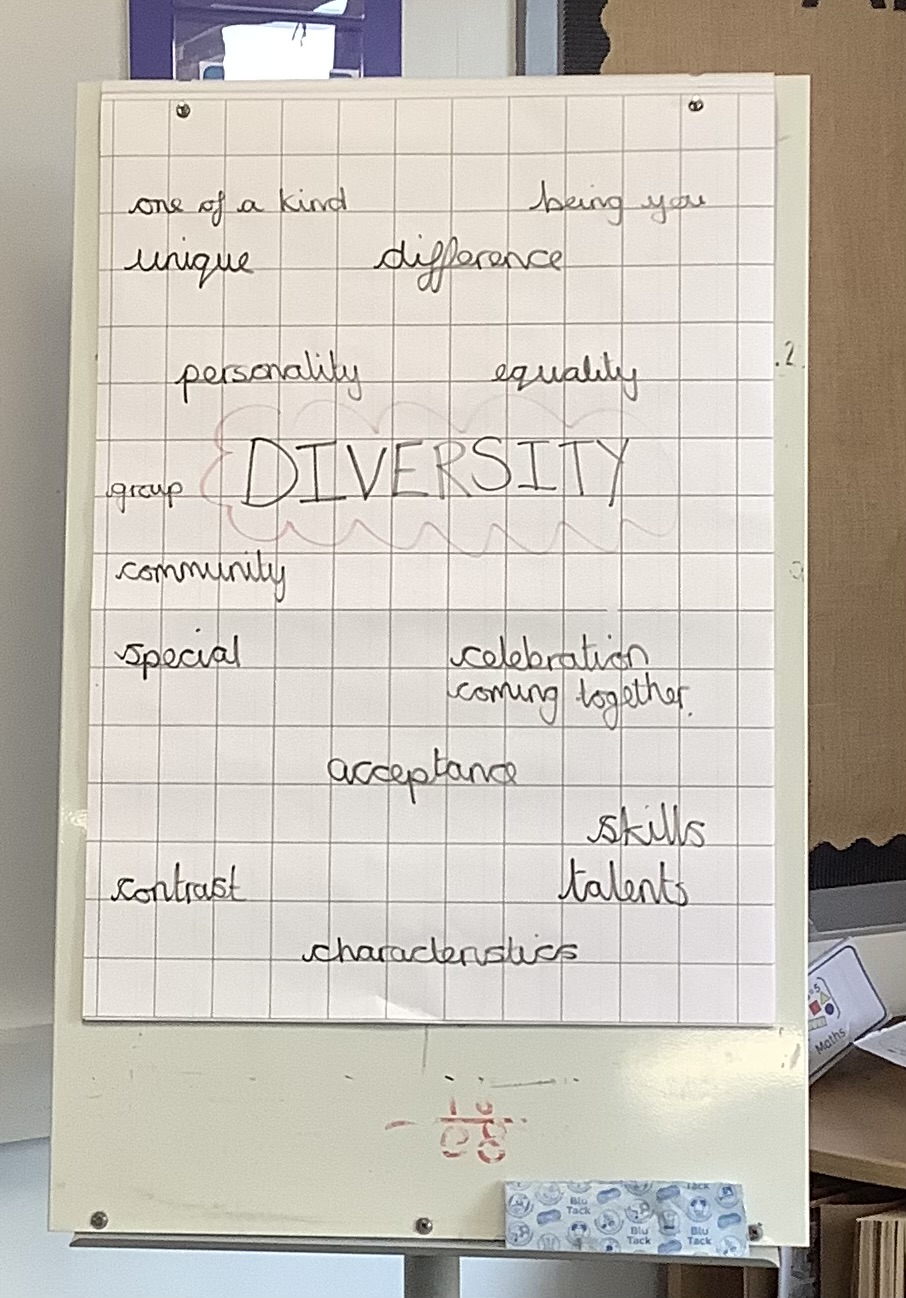 one of a kind being you
unique difference
personality equality
.2
DIVERSITY
group
community
special celebration
coming together.
acceptance
skills
contrast talents
characteristics
Maths
Blu Tack
Tack
Blu Tack
Blu Tack